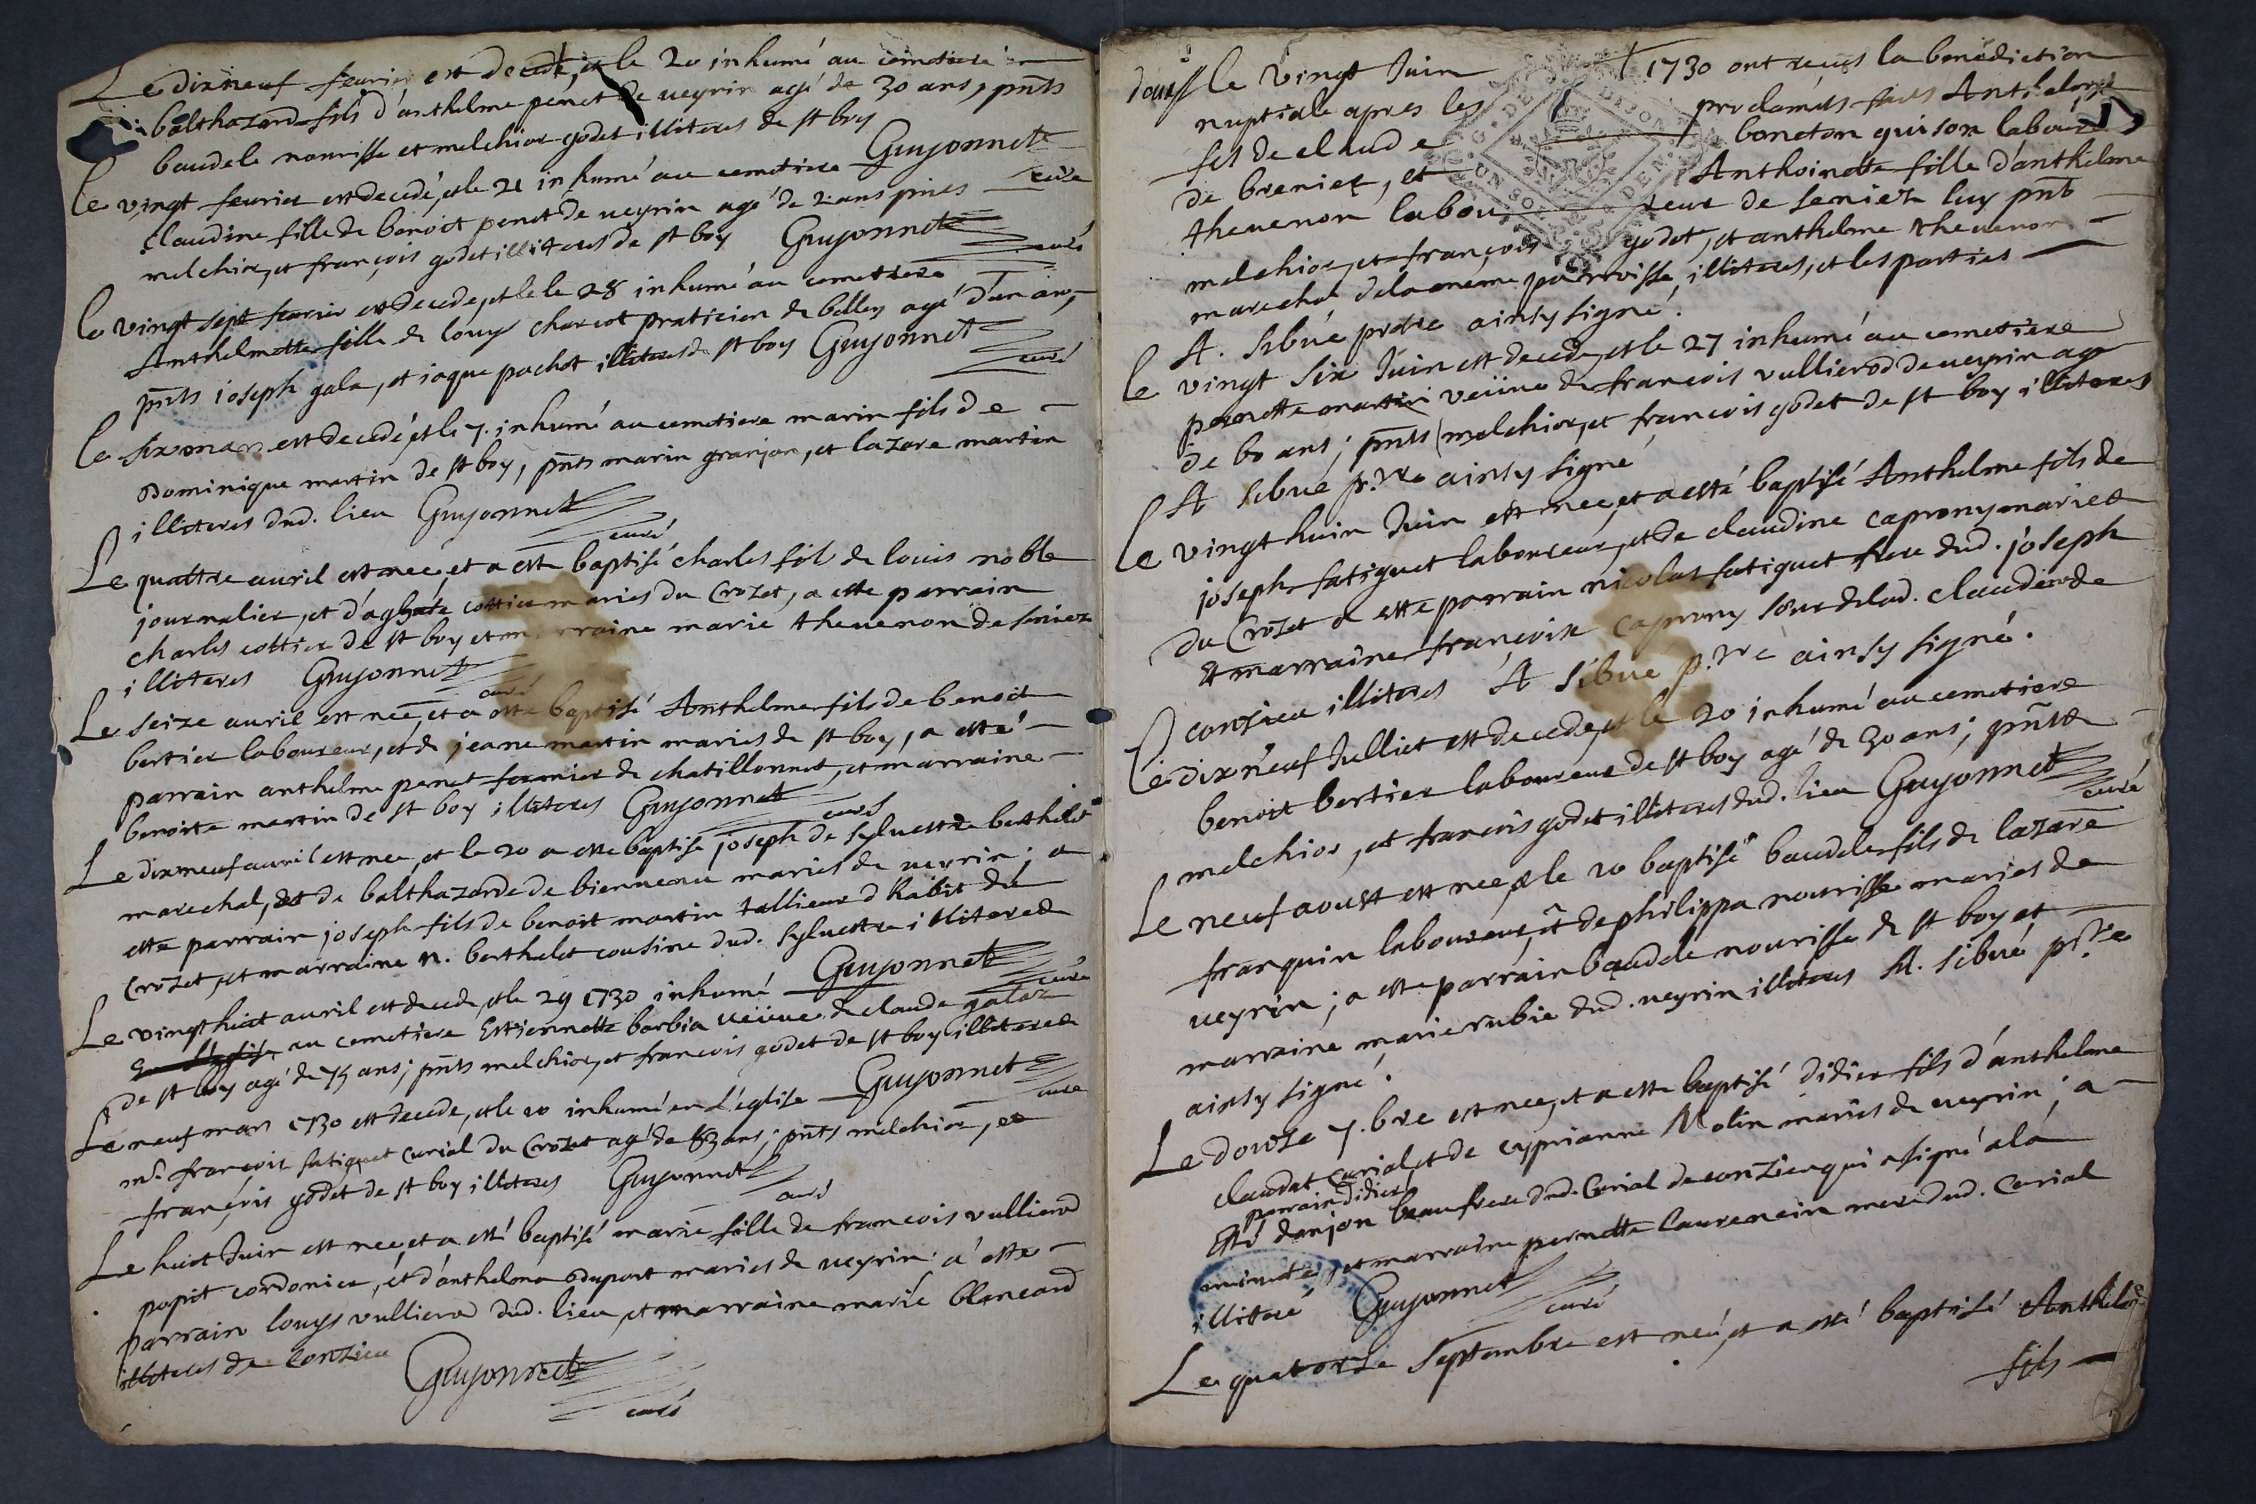 Le dixneuf feurier est decedé, et le 20 inhumé au cimetiere
balthazard fils d'anthelme penet de ueyrin agé de 30 ans, pnts
baudele nourisse et melchior godet illiteres de st boy
Guyonnet curé
le vingt feurier est decedé, et le 21 inhumé au cemetiere
claudine fille de benoit penet de ueyrin agé de 2 ans pnts
melchior, et françois godet illiteres de st boy Guyonnet curé
le vingt sept feurier est decede, et le le 28 inhumé au cemetiere
Anthelmette fille de louys charcot praticien de belley agé d'un an,
pnts ioseph gala, et iaque pochet illiteres de st boy Guyonnet curé
le six mars est decedé, et le 7. inhumé au cemetiere marin fils de
Dominique martin de st boy, pnts marin granjon, et lazare martin
illiteres dud. lieu Guyonnet curé
Le quattre auril est nee, et a este baptisé charles fils de louis noble
journalier, et d'aghate cottier maries du Crozet, a este parrain
charles cottier de st boy et marraine marie theuenon de seniez
illiteres Guyonnet curé
Le seize auril est nee, et a este baptisé Anthelme fils de benoit
bertier laboureur, et de jeane martin maries de st boy, a esté
parrain anthelme penet fermier de chatillonnet, et marraine
benoite martin de st boy illiteres Guyonnet curé
Le dixneuf auril est nee, et le 20 a este baptise joseph de syluestre berthelet
marechal, et de balthazarde de bienuenu maries de ueyrin; a
este parrain joseph fils de benoit martin tallieur d habit du
Crozet, et marraine n. berthelet cousine dud. syluestre illiteres
Guyonnet curé
Le vingt huit auril est decede, et le 29 1730 inhumé
en l'eglise au cemetiere Estiennette barbia ueüue de claude galaz
de st boy agé de 75 ans; pnts melchior, et francois godet de st boy illiteres
Guyonnet curé
Le neuf mars 1730 est decede, et le 10 inhumé en L'église
mr. françois fatiguet curial du Crozet agé de 83 ans; pnts melchior, et
françois godet de st boy illiteres Guyonnet curé
Le huit Juin est nee, et a esté baptisé marie fille de francois vullierod
papit cordonier, et d'anthelme dupont maries de ueyrin a este
parrain louys vullierod dud. lieu, et marraine marie blancard
illiteres de Conzieu
Guyonnet curé
le vingt Juin 1730 ont reçus la benediction
nuptiale apres les proclamats faits Anthelme
fils de claude boneton guison laboureur
de brenier, et Anthoinette fille d'anthelme
theuenon laboureur de seniez luy pnt
melchior, et françois godet, et anthelme theuenon
marechal de la méme parroisse, illiteres, et les parties
A. sibué prêtre ainsy signé.
le vingt six Juin est decede, et le 27 inhumé au cemetiere
pernette martin veüue de francois vullierod de ueyrin agé
de 60 ans; pnts melchior, et francois godet de st boy illiteres
A sibué p.tre ainsy signé
Le vingt huin Juin est nee, et a esté baptisé Anthelme fils de
joseph fatiguet laboureur, et de claudine caprony maries
du Crozet a este parrain nicolas fatiguet frere dud. joseph
Et marraine françoise caprony sœur de lad. claudine de
conzieu illiteres A sibué p.tre ainsy signé.
Le dixneuf Julliet est decede, et le 20 inhumé au cemetiere
benoit bertier laboureur de st boy agé de 30 ans; pnts
melchior, et francois godet illiteres dud. lieu Guyonnet curé
Le neuf aoust est nee, et le 10 baptisé baudele fils de lazare
franquin laboureur, et de philippa nourisse maries de
ueyrin; a este parrain baudele nourisse de st boy et
marraine marie rubie dud. ueyrin illiteres A. sibué p.tre
ainsy signé.
Le douze 7.bre est nee, et a este baptisé didier fils d'anthelme
claudat curial, et de cyprianne Molin mariés de ueyrin; a
parrain didier
Esté danjon beaufrere dud. Curial de conzieu qui a signé a la
minute, et marraine pernette laurencin mere dud. Curial
illitere Guyonnet curé
Le quatorze Septembre est né, et a esté baptisé Anthelme
fils